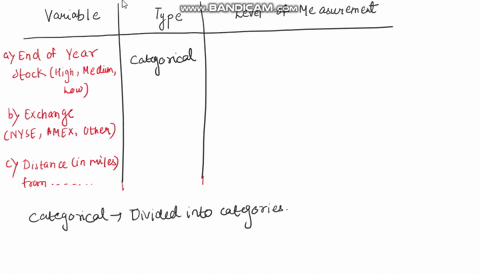 www.BANDICAM.com
Variable Type Level of Measurement
a) End of Year Categorical
Stock (High, Medium,
Low)
b) Exchange
(NYSE, AMEX, Other)
c) Distance (in miles)
from .......
Categorical → Divided into categories.